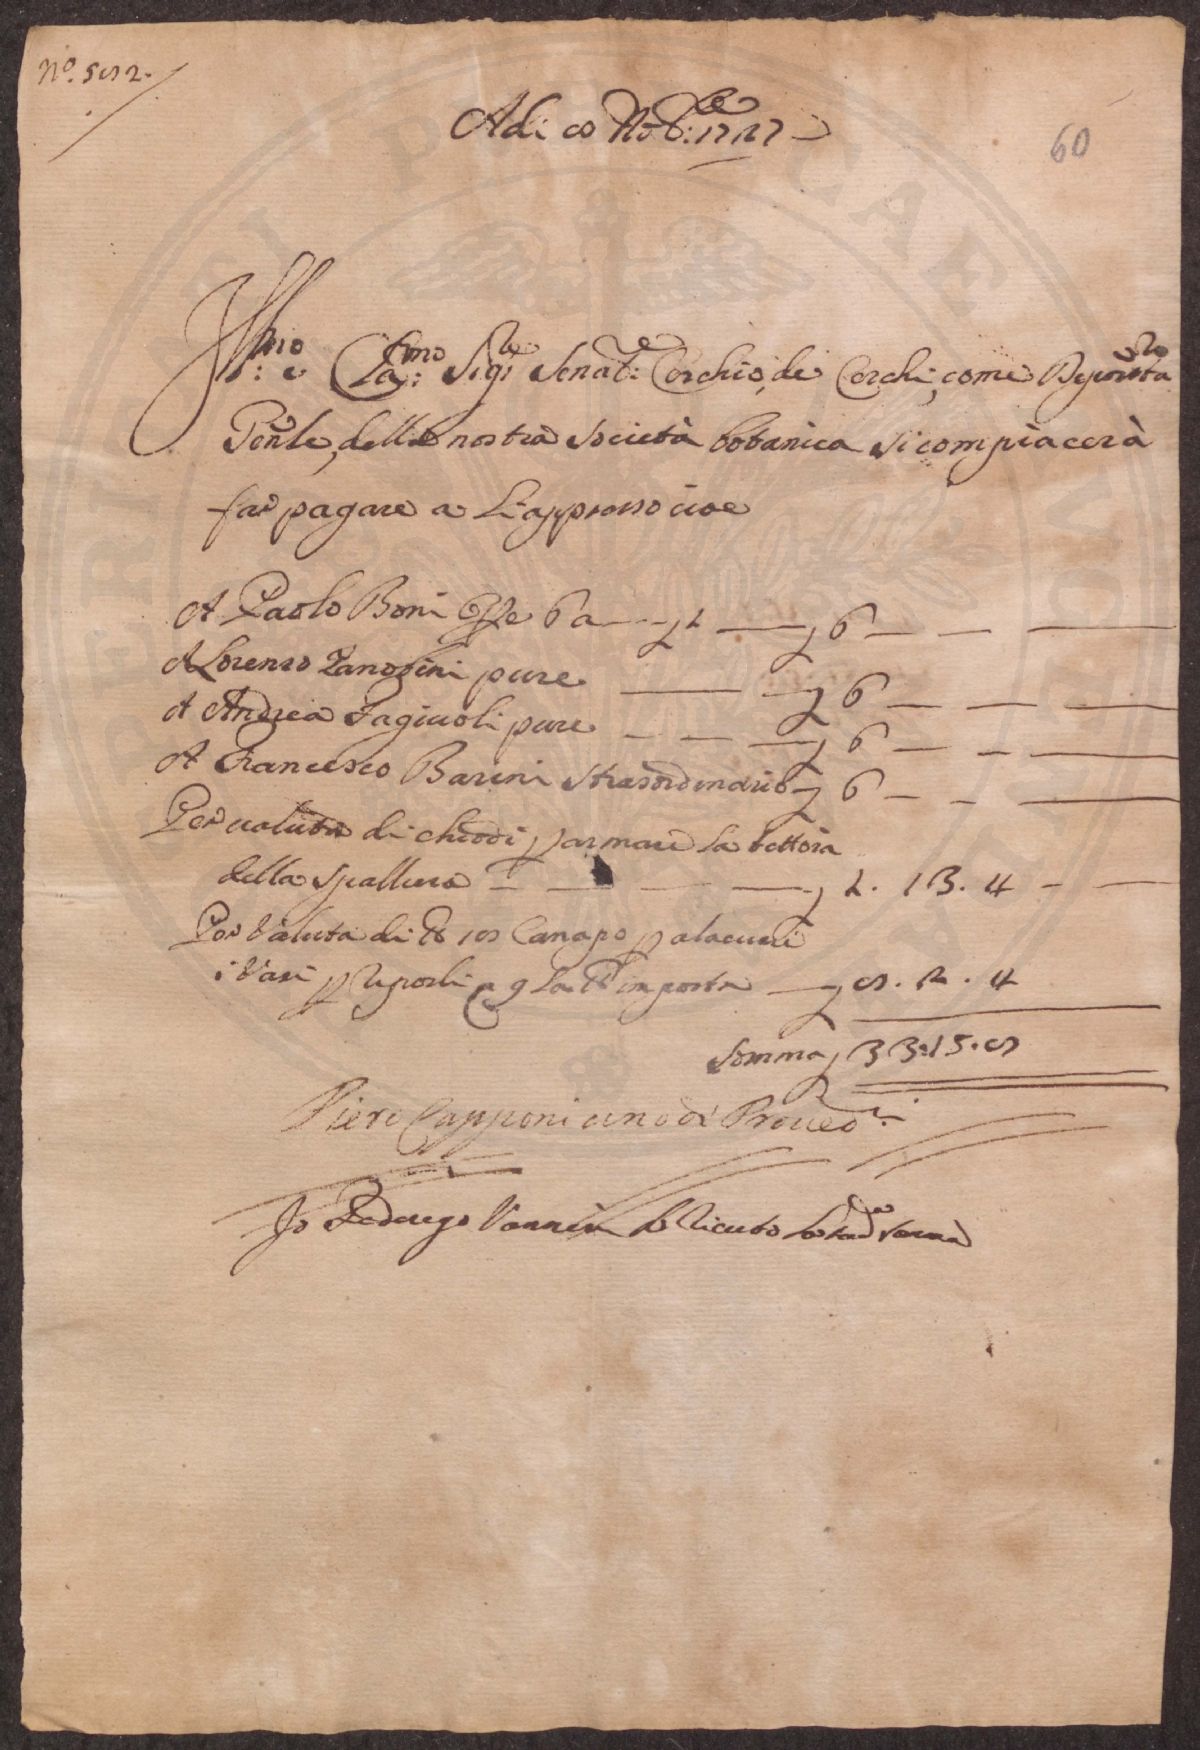 No. 592.
Adi 8 Nov.bre 1727
60
Ill.mo e Cla.mo Sig.re Senat.re Cerchio, de Cerchi, come Deposita.rio
Gen.le, della nostra Società botanica si compiacerà
far pagare a L'appresso cioe
A Paolo Boni 6 a £ 1 £ 6
A Lorenzo Zanobini pure £ 6
A Andrea Fagiuoli pure £ 6
A Francesco Barini strasordinario £ 6
Per valuta di chiodi p armare la tettoia
della spalliera £ 4. 13. 4
Per Valuta di lb 19 Canapo p
i Vasi p riporli la imposta £ 9. 2. 4
Somma £ 33.15.8
Piero Capponi uno di Proved.ri
Io Federigo Vannini ho ricevto la somma